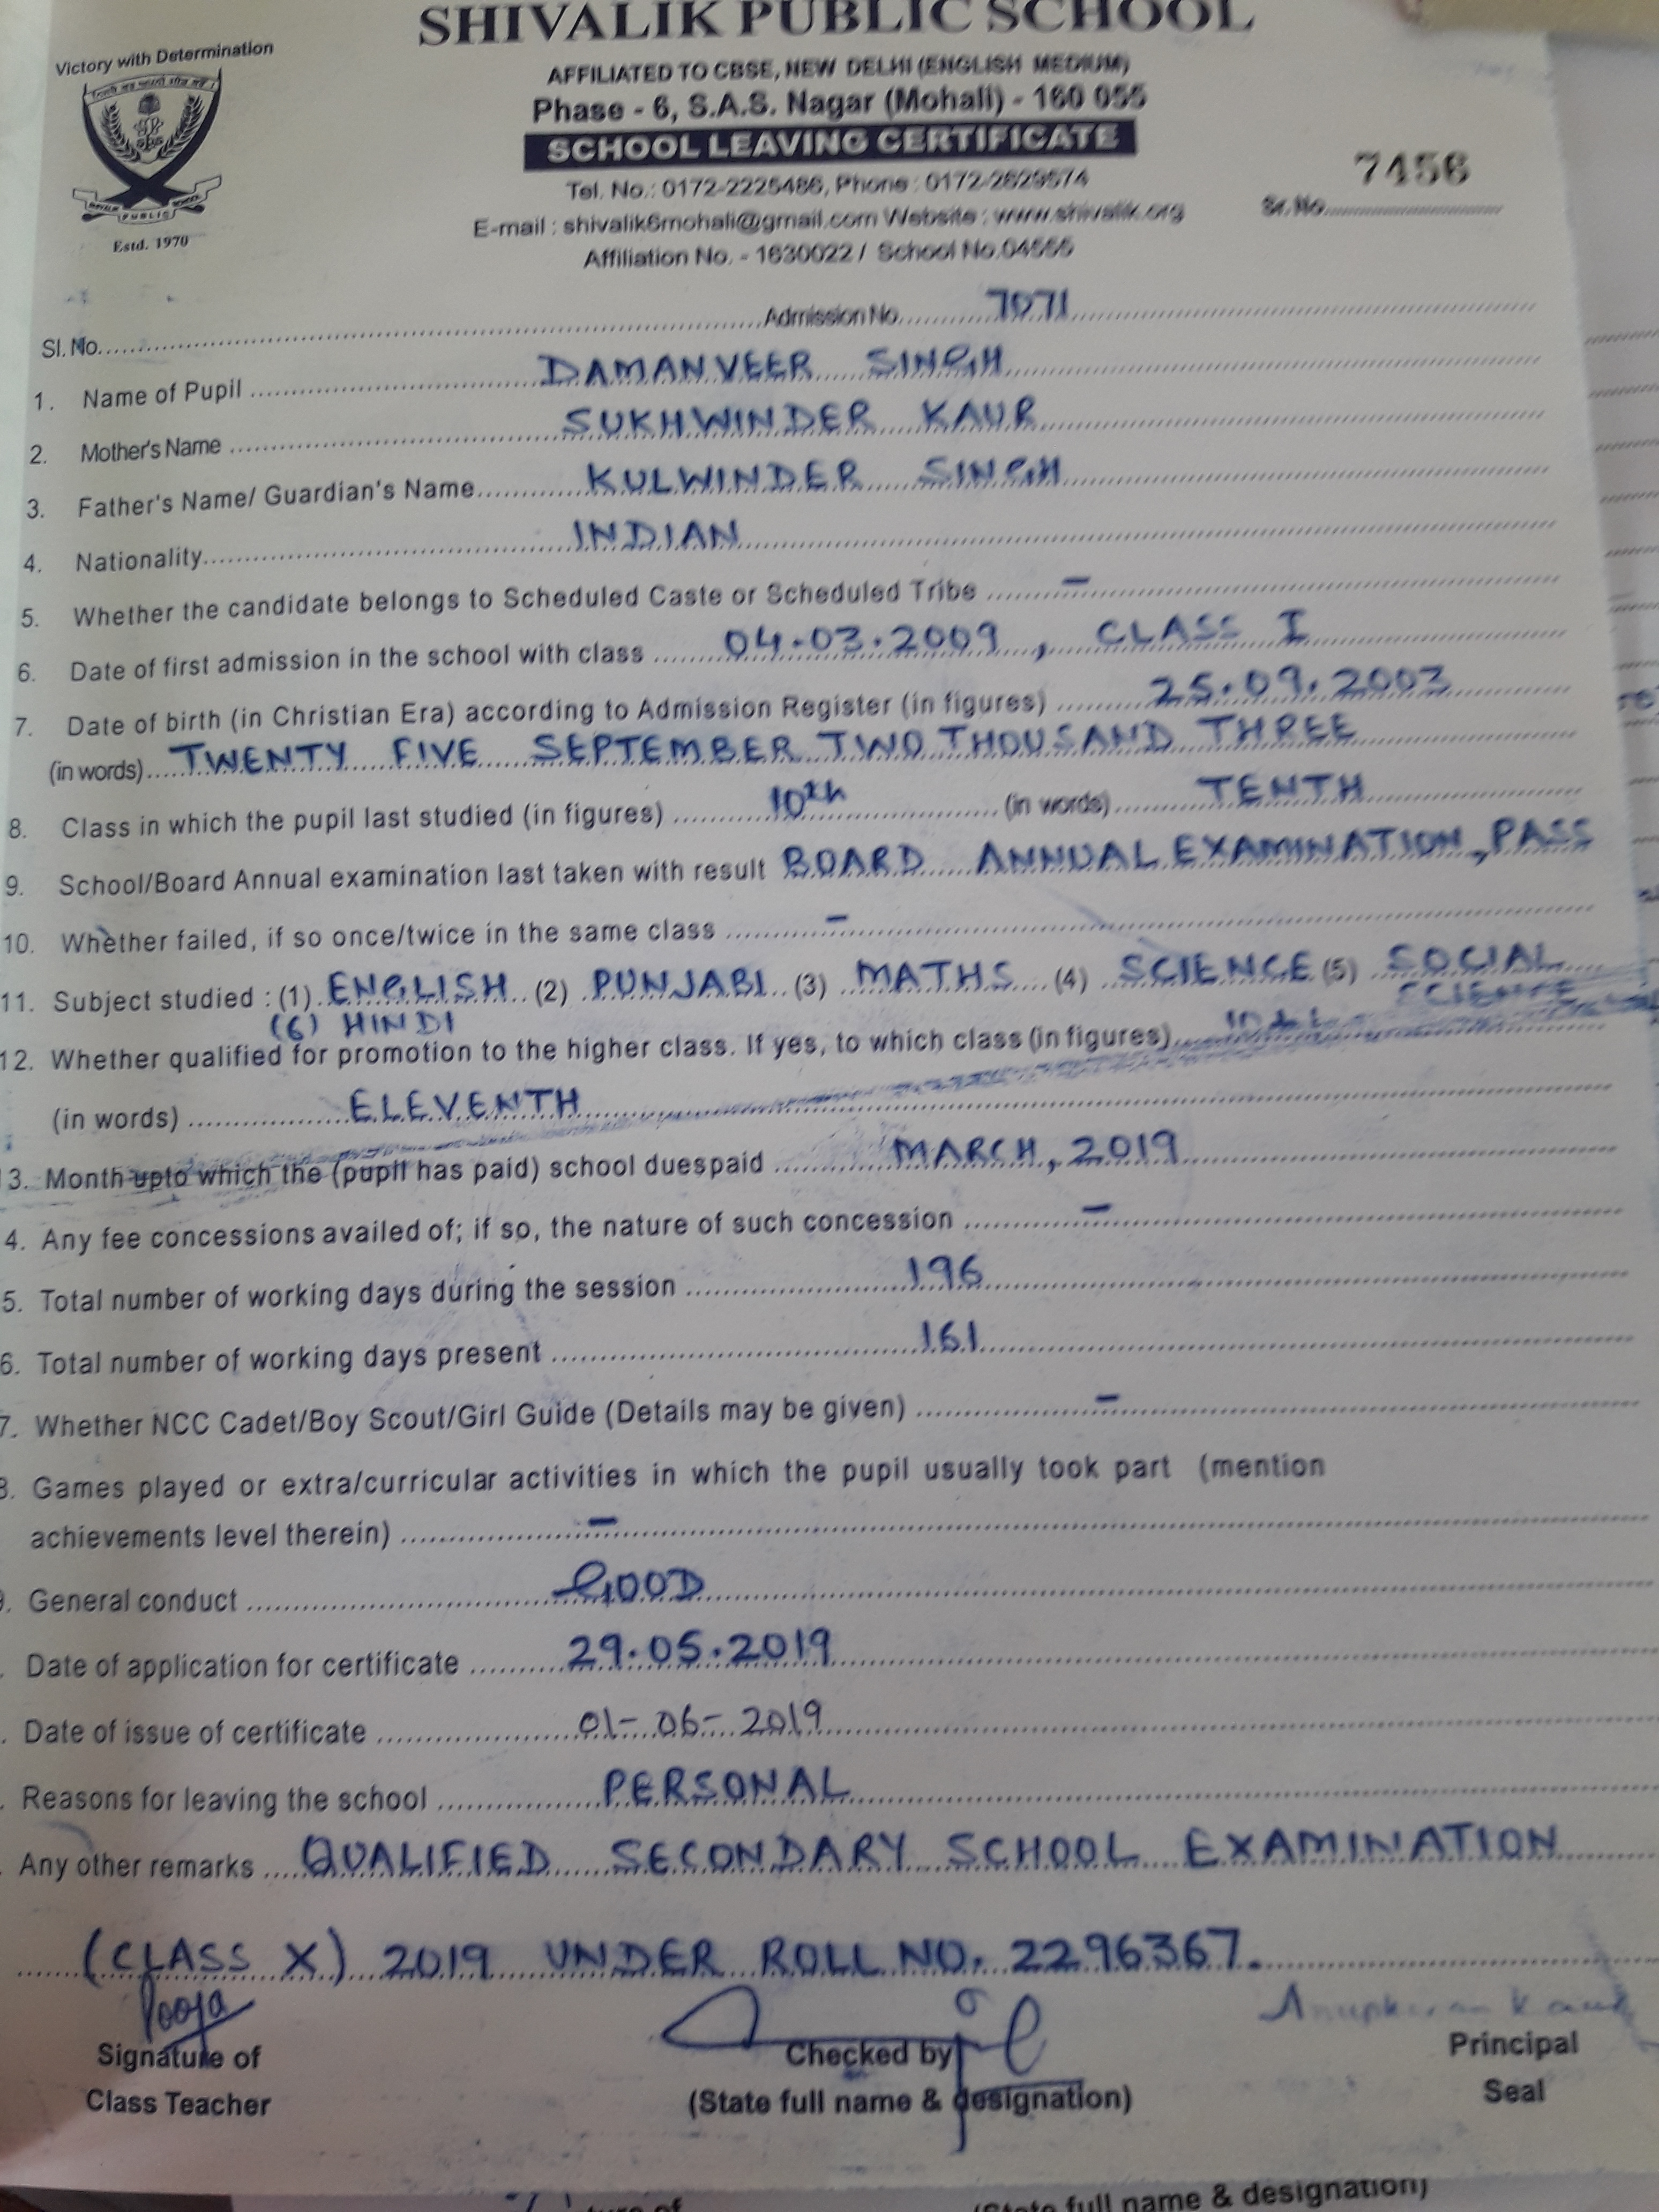 SHIVALIK PUBLIC SCHOOL
Victory with Determination
AFFILIATED TO CBSE, NEW DELHI (ENGLISH MEDIUM)
Phase - 6, S.A.S. Nagar (Mohali) - 160 055
SCHOOL LEAVING CERTIFICATE
PUBLIC
Estd. 1970
Tel. No.: 0172-2225486, Phone : 0172-2629574
7456
Sr. No.
E-mail : shivalik6mohali@gmail.com Website : www.shivalik.org
Affiliation No. - 1630022 / School No.04555
Sl. No. Admission No. 7071
1. Name of Pupil DAMANVEER SINGH
2. Mother's Name SUKHWINDER KAUR
3. Father's Name/ Guardian's Name KULWINDER SINGH
4. Nationality INDIAN
5. Whether the candidate belongs to Scheduled Caste or Scheduled Tribe –
6. Date of first admission in the school with class 04.03.2009, CLASS I
7. Date of birth (in Christian Era) according to Admission Register (in figures) 25.09.2003
(in words) TWENTY FIVE SEPTEMBER TWO THOUSAND THREE
8. Class in which the pupil last studied (in figures) 10th (in words) TENTH
9. School/Board Annual examination last taken with result BOARD ANNUAL EXAMINATION, PASS
10. Whether failed, if so once/twice in the same class –
11. Subject studied : (1) ENGLISH (2) PUNJABI (3) MATHS (4) SCIENCE (5) SOCIAL
SCIENCE
(6) HINDI
12. Whether qualified for promotion to the higher class. If yes, to which class (in figures)
(in words) ELEVENTH
3. Month upto which the (pupil has paid) school duespaid MARCH, 2019
4. Any fee concessions availed of; if so, the nature of such concession –
5. Total number of working days during the session 196
6. Total number of working days present 161
7. Whether NCC Cadet/Boy Scout/Girl Guide (Details may be given) –
8. Games played or extra/curricular activities in which the pupil usually took part (mention
achievements level therein) –
9. General conduct GOOD
. Date of application for certificate 29.05.2019
. Date of issue of certificate 01-06-2019
. Reasons for leaving the school PERSONAL
. Any other remarks QUALIFIED SECONDARY SCHOOL EXAMINATION
(CLASS X) 2019 UNDER ROLL NO. 2296367.
Pooja
Anupkiran Kaur
Signature of
Class Teacher
Checked by
(State full name & designation)
Principal
Seal
(State full name & designation)